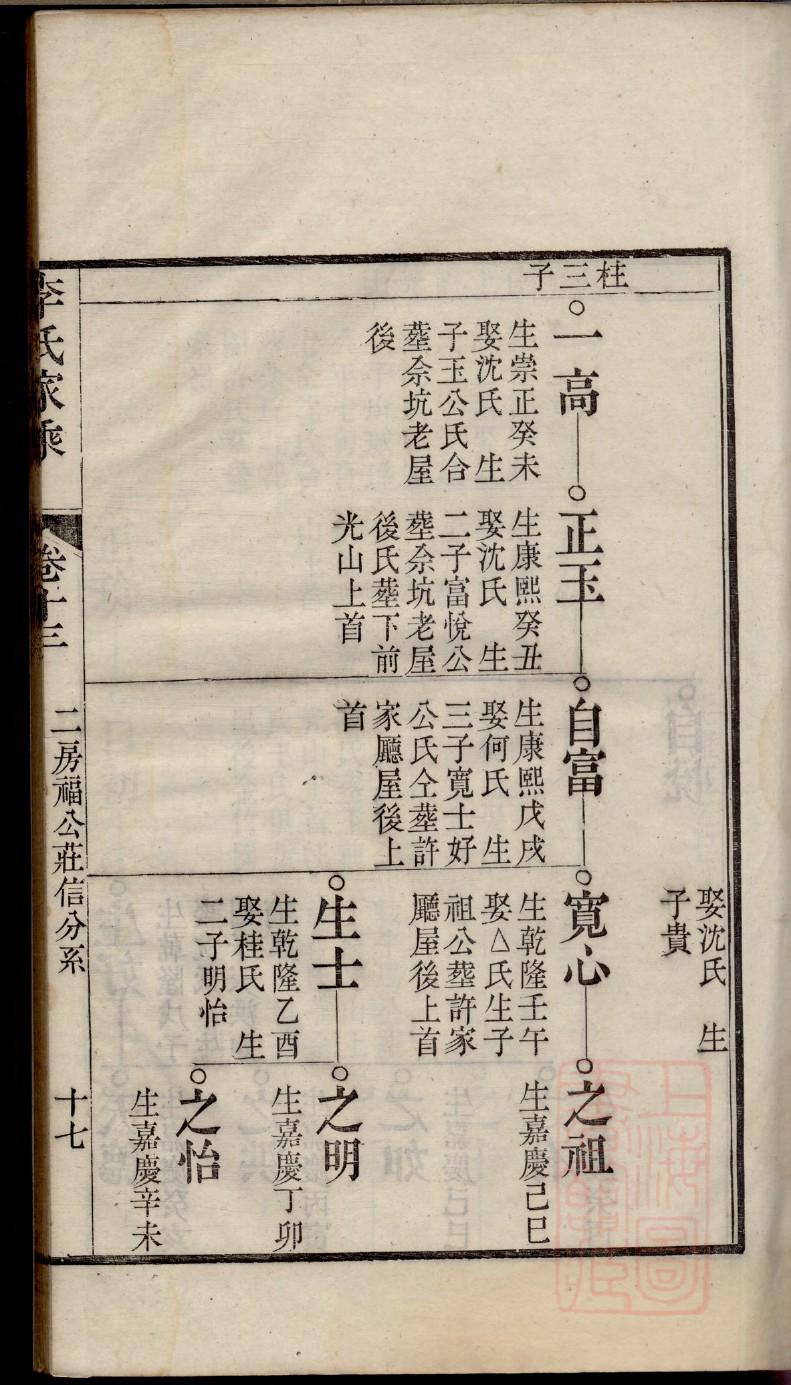 柱三子
娶沈氏　生
子貴
一高
生崇正癸未
娶沈氏　生
子玉公氏合
塟佘坑老屋
後
正玉
生康熙癸丑
娶沈氏　生
二子富悅公
塟佘坑老屋
後氏塟下前
光山上首
自富
生康熙戊戌
娶何氏　生
三子寬士好
公氏仝塟許
家廳屋後上
首
寬心
生乾隆壬午
娶△氏生子
祖公塟許家
廳屋後上首
之祖
生嘉慶己巳
生士
生乾隆乙酉
娶桂氏　生
二子明怡
之明
生嘉慶丁卯
之怡
生嘉慶辛未
李氏家乘
卷十三
二房福公莊信分系
十七